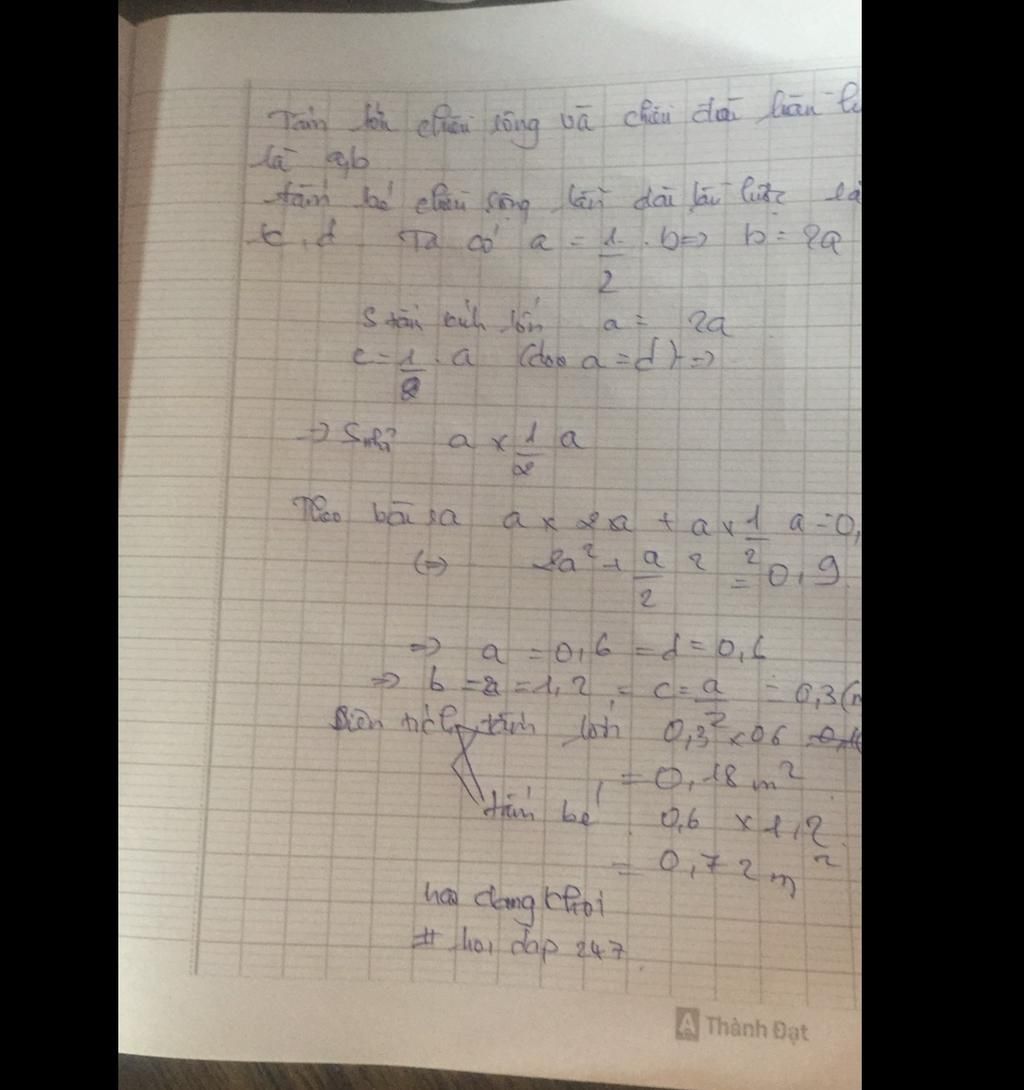 Tấm lớn chiều rộng và chiều dài lần
là a,b
tấm bé chiều rộng lần dài lần lượt là
c, d Ta có a = 1/2 . b => b = 2a
S tấm kính lớn a = 2a
c = 1/2 . a (doo a = d) =>
=> S nhỏ a x 1/2 a
Theo bài ra a x 2 x a + a x 1/2 a = 0,
<=> 2a² + a/2 2 = 0,9
=> a = 0,6 = d = 0,6
=> b = 2a = 1,2 = c = a/2 = 0,3(m
Diện tích tấm lớn 0,3 x 06
= 0,18 m²
tấm bé 0,6 x 1,2
= 0,72 m²
hoa dang khoi
# hoi dap 247
A Thành Đạt